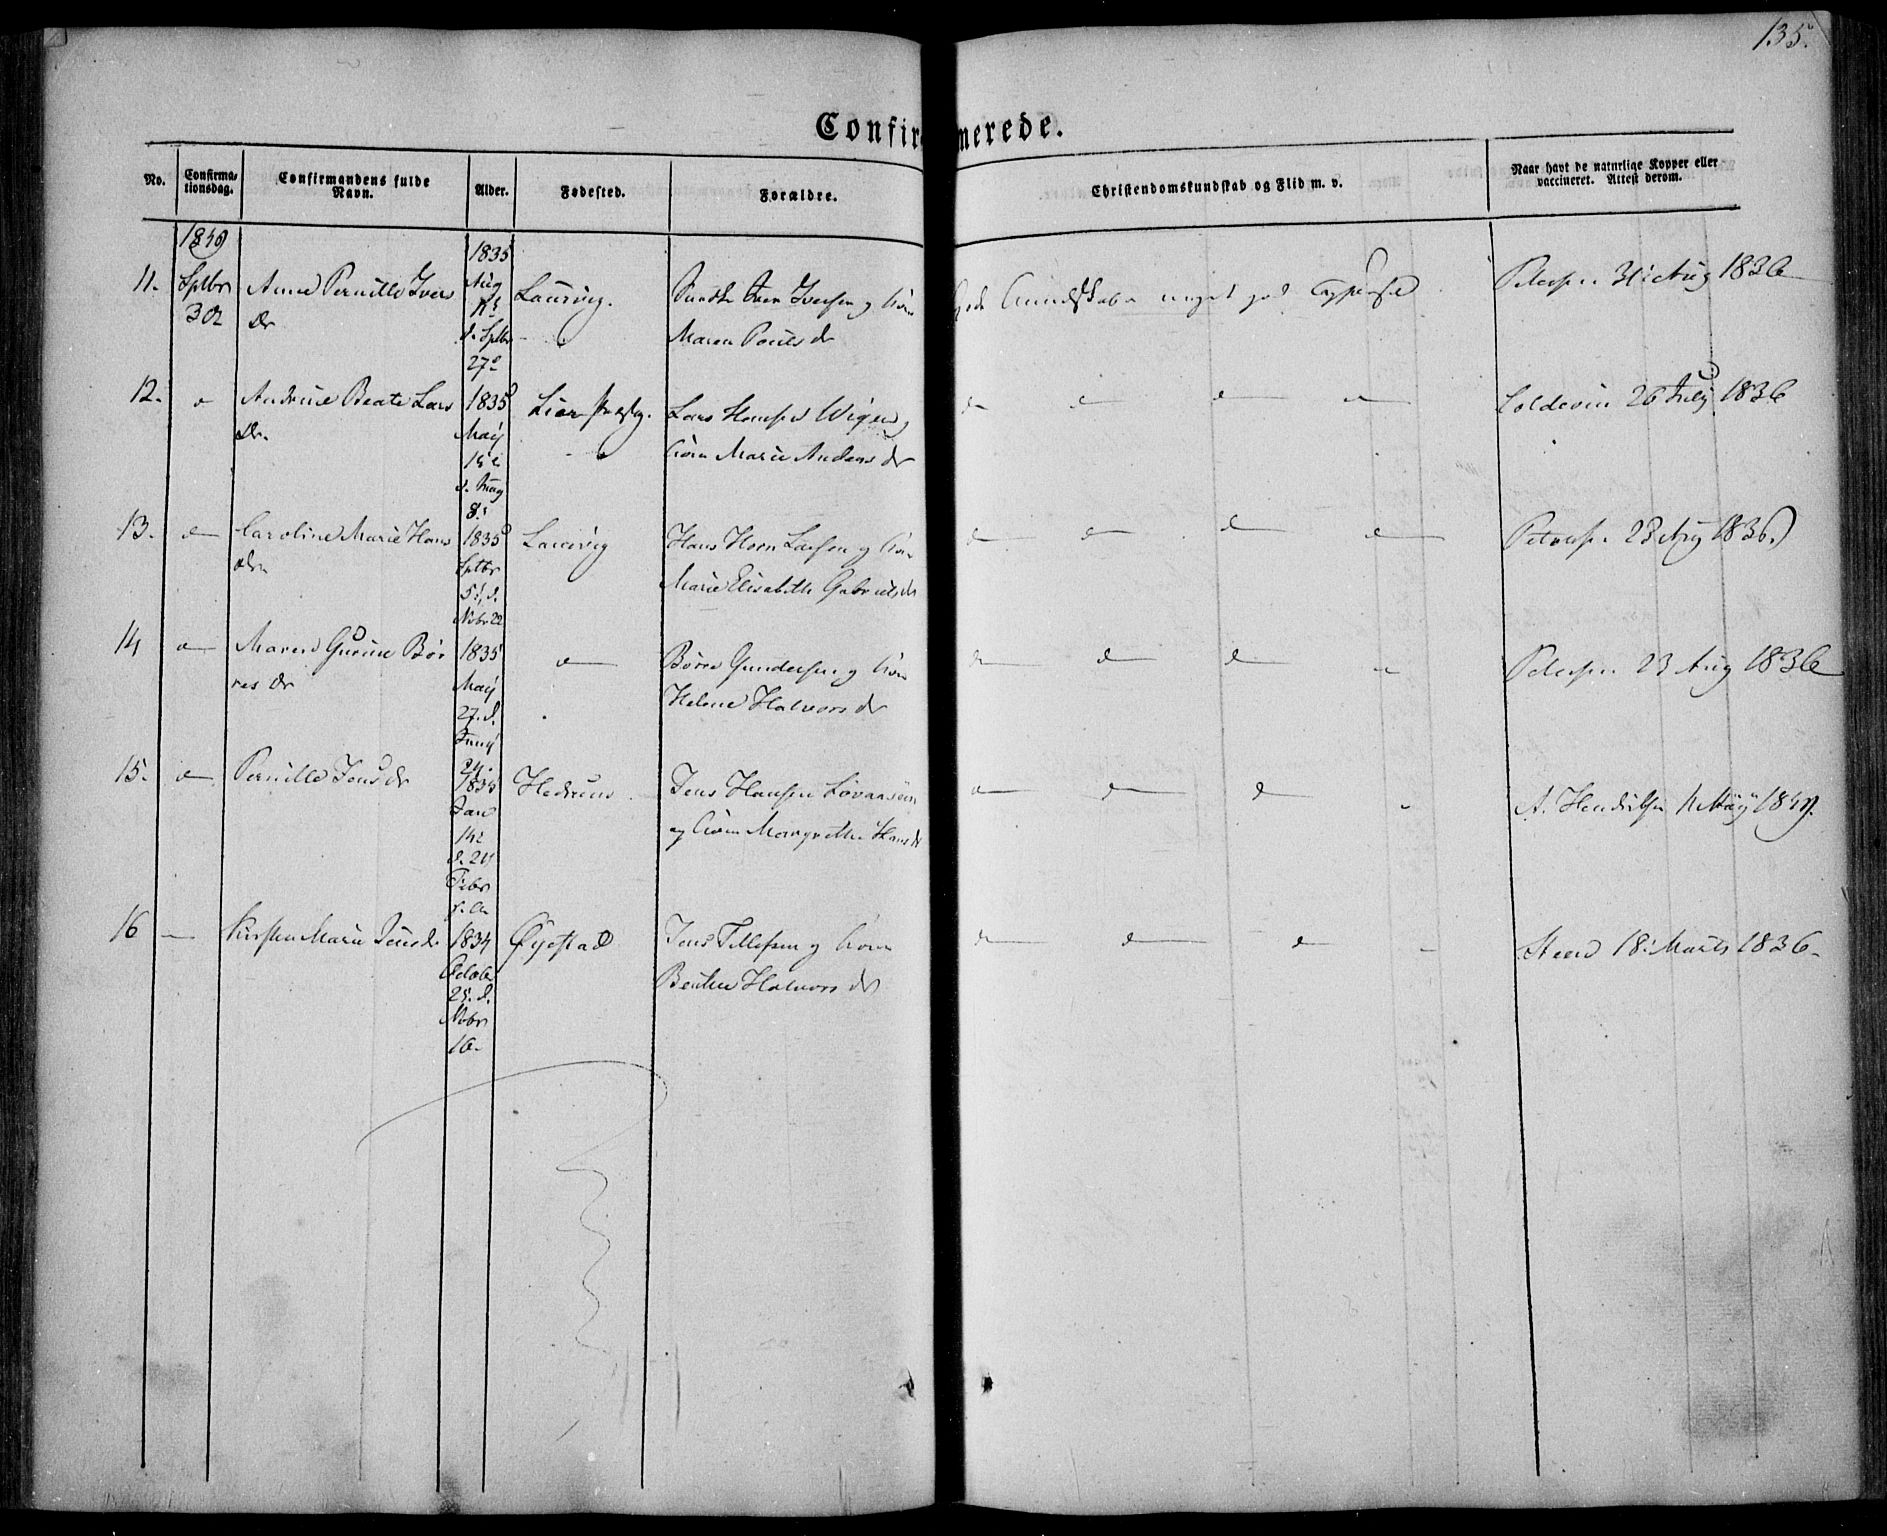 135.
Confirmerede.
No.
Confirma-
tionsdag.
Confirmandens fulde
Navn.
Alder.
Fødested.
Forældre.
Christendomskundskab og Flid m. v.
Naar havt de naturlige Kopper eller
vaccineret. Attest derom.
11.
Sptbr
Anne Pernille Ivers
Dr
1835
Aug
d. Sptbr
27
Laurvig.
Iver Iversen og Kone
Maren Pouls dr
Kundskab meget god
Peters. 31 Aug 1836
12.
Andrine Beate Lars
Dr.
1835
May
8.
Lier
Lars Hansen Wigen
Kone Marie Anders dr
Coldevin 26 July 1836
13.
Caroline Marie Hans
dr
1835
Sptbr
5. d.
Nvbr 22
Laurvig
Hans Horn Larsen og Kone
Marie Elisabeth Gabriels dr
Peters. 23 Aug 1836
14
Maren Gurine Bør
res dr
1835
May
27. d.
Juny
24.
Børre Gundersen og Kone
Helene Halvors dr
Peters. 23 Aug 1836
15.
Pernille Jens dr
1835
Jan
d. 24
Febr
Hedrum
Jens Hansen
og Kone Margrethe Hans dr
A. Hendriksen May
16
Kirsten Marie Jens dr
1834
Octobr
25. d.
Nvbr
16.
Øyestad
Jens Tellefsen og Kone
Halvors dr
Steen 18. Marts 1836.